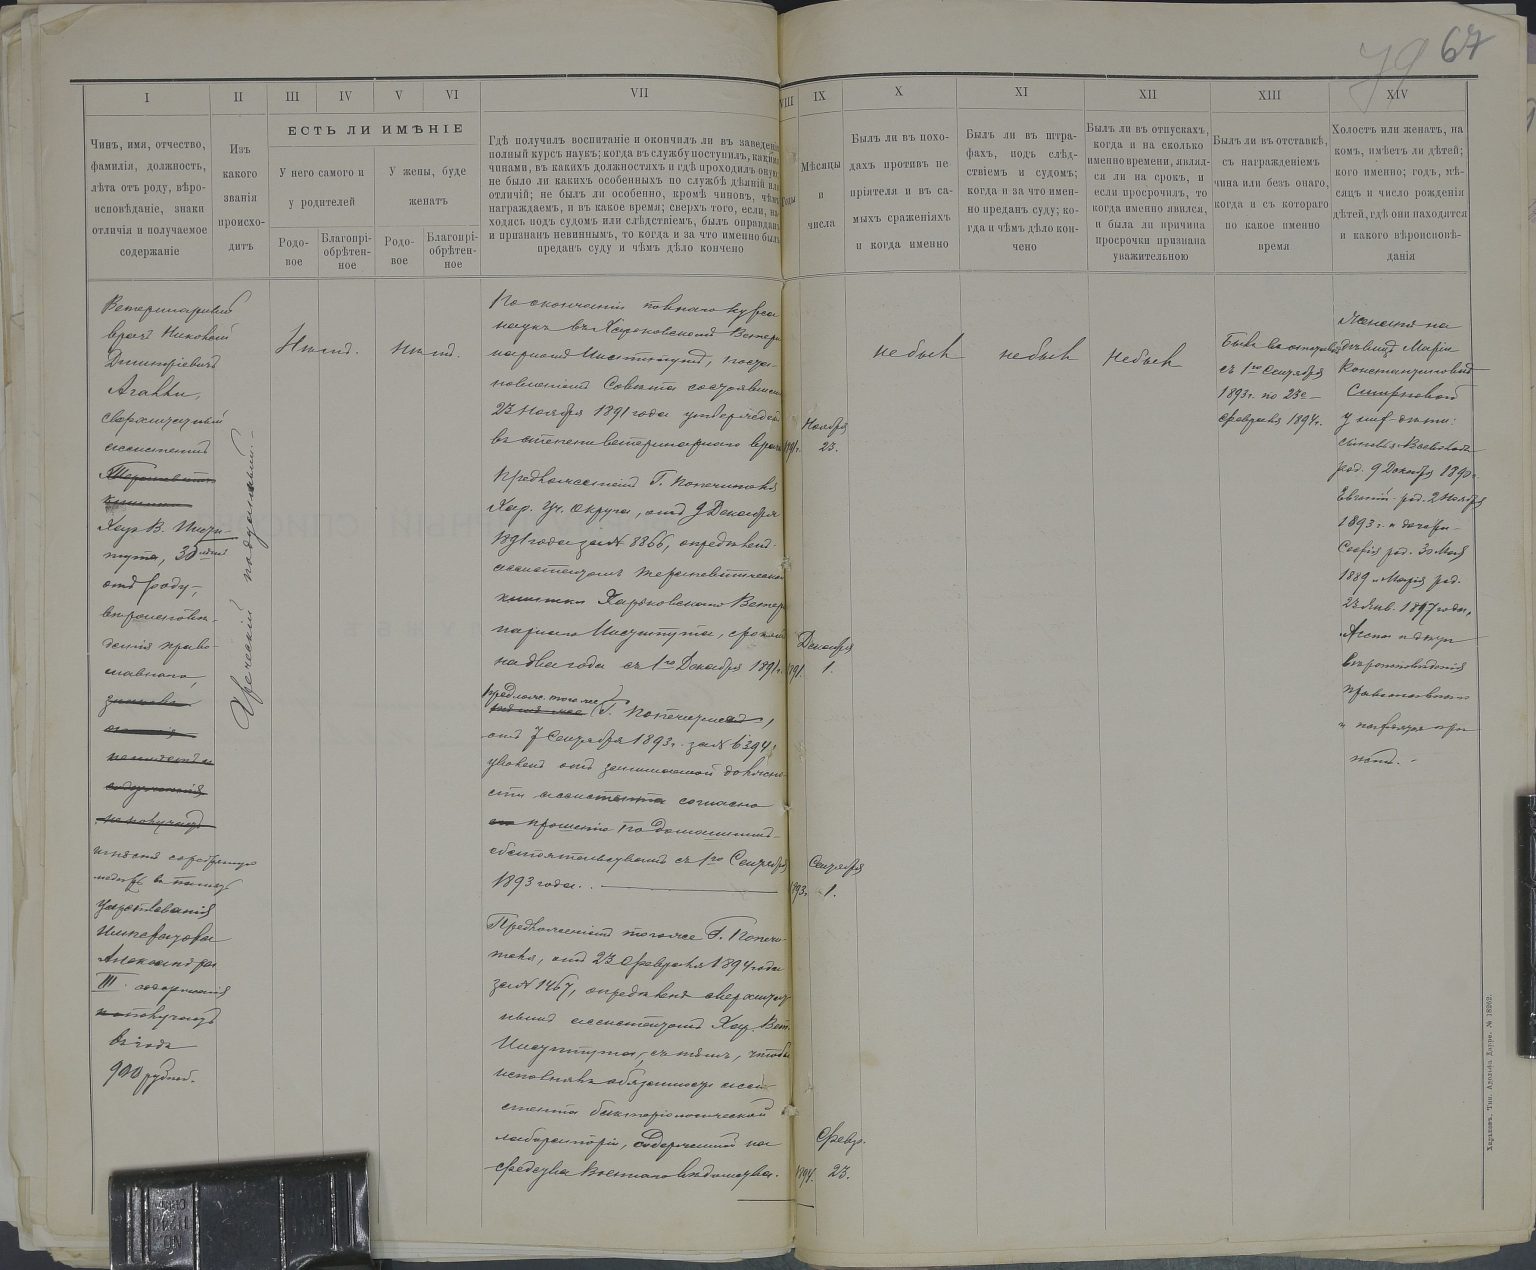 79 67
I
II
III
IV
V
VI
VII
VIII
IX
X
XI
XII
XIII
XIV
Чинъ, имя, отчество,
фамилія, должность,
лѣта отъ роду, вѣро-
исповѣданіе, знаки
отличія и получаемое
содержаніе
Изъ
какого
званія
происхо-
дитъ
ЕСТЬ ЛИ ИМѢНІЕ
У него самого и
у родителей
У жены, буде
женатъ
Родо-
вое
Благопрі-
обрѣтен-
ное
Родо-
вое
Благопрі-
обрѣтен-
ное
Гдѣ получилъ воспитаніе и окончилъ ли въ заведеніи
полный курсъ наукъ; когда въ службу поступилъ, какими
чинами, въ какихъ должностяхъ и гдѣ проходилъ оную;
не было ли какихъ особенныхъ по службѣ дѣяній или
отличій; не былъ ли особенно, кромѣ чиновъ, чѣмъ
награждаемъ, и въ какое время; сверхъ того, если, на-
ходясь подъ судомъ или слѣдствіемъ, былъ оправданъ
и признанъ невиннымъ, то когда и за что именно былъ
преданъ суду и чѣмъ дѣло кончено
Годы
Мѣсяцы
и
числа
Былъ ли въ похо-
дахъ противъ не
пріятеля и въ са-
мыхъ сраженіяхъ
и когда именно
Былъ ли въ штра-
фахъ, подъ слѣд-
ствіемъ и судомъ;
когда и за что имен-
но преданъ суду; ко-
гда и чѣмъ дѣло кон-
чено
Былъ ли въ отпускахъ,
когда и на сколько
именно времени, являл-
ся ли на срокъ, и
если просрочилъ, то
когда именно явился,
и была ли причина
просрочки признана
уважительною
Былъ ли въ отставкѣ,
съ награжденіемъ
чина или безъ онаго,
когда и съ котораго
по какое именно
время
Холостъ или женатъ, на
комъ, имѣетъ ли дѣтей;
кого именно; годъ, мѣ-
сяцъ и число рожденія
дѣтей, гдѣ они находятся
и какого вѣроисповѣ-
данія
Ветеринарный
врачъ Николай
Дмитріевичъ
Агалли,
сверхштатный
ассистентъ
Терапевтич.
клиники
Хар. В. Инсти-
тута, 30 лѣтъ
отъ роду,
вѣроисповѣ-
данія право-
славнаго,
знаковъ
отличія
не имѣетъ и
содержанія
не получаетъ
имѣетъ серебряную
медаль въ память
Царствованія
Императора
Александра
III содержанія
получаетъ
въ годъ
900 рублей.
Греческій подданный.
Нѣтъ. Нѣтъ.
По окончаніи полнаго курса
наукъ въ Харьковскомъ Ветери
нарномъ Институтѣ, поста-
новленіемъ Совѣта состоявшимся
23 Ноября 1891 года утвержденъ
въ степени ветеринарнаго врача
1891 г.
Ноября
23.
Предложеніемъ Г. Попечителя
Хар. Уч. Округа, отъ 9 Декабря
1891 года за № 8866, опредѣленъ
ассистентомъ терапевтической
клиники Харьковскаго Ветери
нарнаго Института, срокомъ
на два года съ 1го Декабря 1891 г.
1891.
Декабря
1.
Предлож. того же
Г. Попечителя,
отъ 7 Сентября 1893 г. за № 6394,
уволенъ отъ занимаемой должно-
сти ассистента согласно
прошенію по домашнимъ
обстоятельствамъ съ 1го Сентября
1893 года.
1893 г.
Сентября
1.
Предложеніемъ того же Г. Попечи-
теля, отъ 23 Февраля 1894 года
за № 1467, опредѣленъ сверхштат-
нымъ ассистентомъ Хар. Вет.
Института, съ тѣмъ, чтобы
исполнялъ обязанности асси-
стента бактеріологической
лабораторіи, содержимой на
средства Военнаго вѣдомства.
1894.
Февр.
23.
не былъ
не былъ
не былъ
Былъ въ отставкѣ
съ 1го Сентября
1893 г. по 23е
Февраля 1894 г.
Женатъ на
дѣвицѣ Маріи
Константиновой
Смирновой
у них дѣти:
сыновья Всеволодъ
род. 9 Декабря 1890 г.
Евгеній род. 2 Ноября
1893 г. и дочери
Софія род. 30 Мая
1889 и Марія род.
23 Янв. 1897 года,
Жена и дѣти
вѣроисповѣданія
православнаго
и находятся при
немъ.
Харьковъ. Тип. Адольфа Дарре. № 18262.